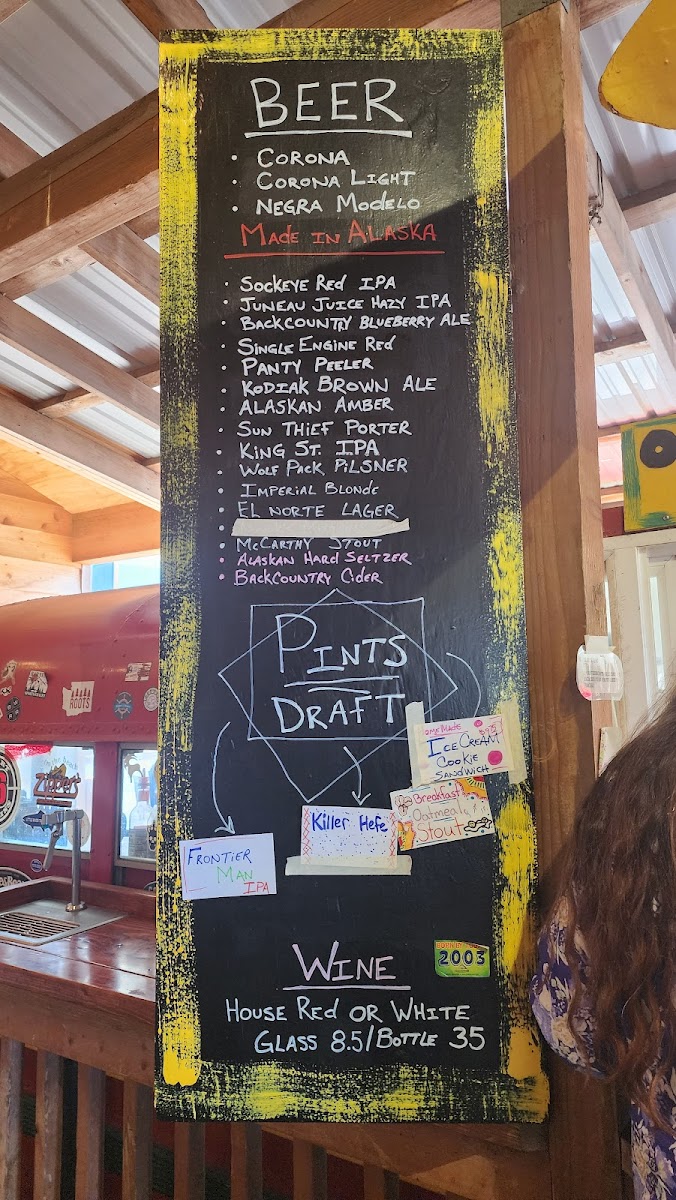 BEER
• CORONA
• CORONA LIGHT
• NEGRA MODELO
MADE IN ALASKA
• SOCKEYE RED IPA
• JUNEAU JUICE HAZY IPA
• BACKCOUNTRY BLUEBERRY ALE
• SINGLE ENGINE RED
• PANTY PEELER
• KODIAK BROWN ALE
• ALASKAN AMBER
• SUN THIEF PORTER
• KING ST. IPA
• WOLF PACK PILSNER
• IMPERIAL BLONDE
• EL NORTE LAGER
• MCCARTHY STOUT
• ALASKAN HARD SELTZER
• BACKCOUNTRY CIDER
PINTS
DRAFT
HOMEMADE
ICE CREAM
COOKIE
SANDWICH
Breakfast
Oatmeal
Stout
Killer Hefe
FRONTIER
MAN
IPA
WINE
2003
HOUSE RED OR WHITE
GLASS 8.5/BOTTLE 35
ROOTS
Zippers